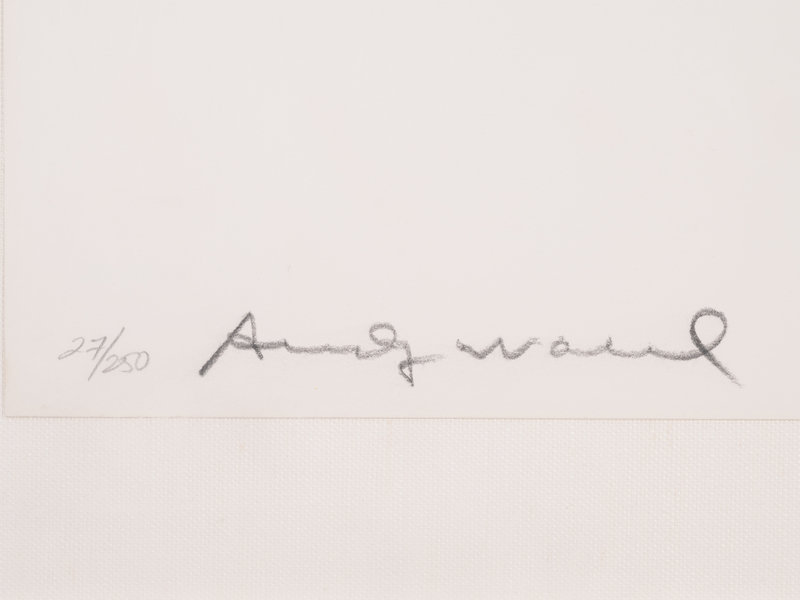 27/250 Andy Warhol